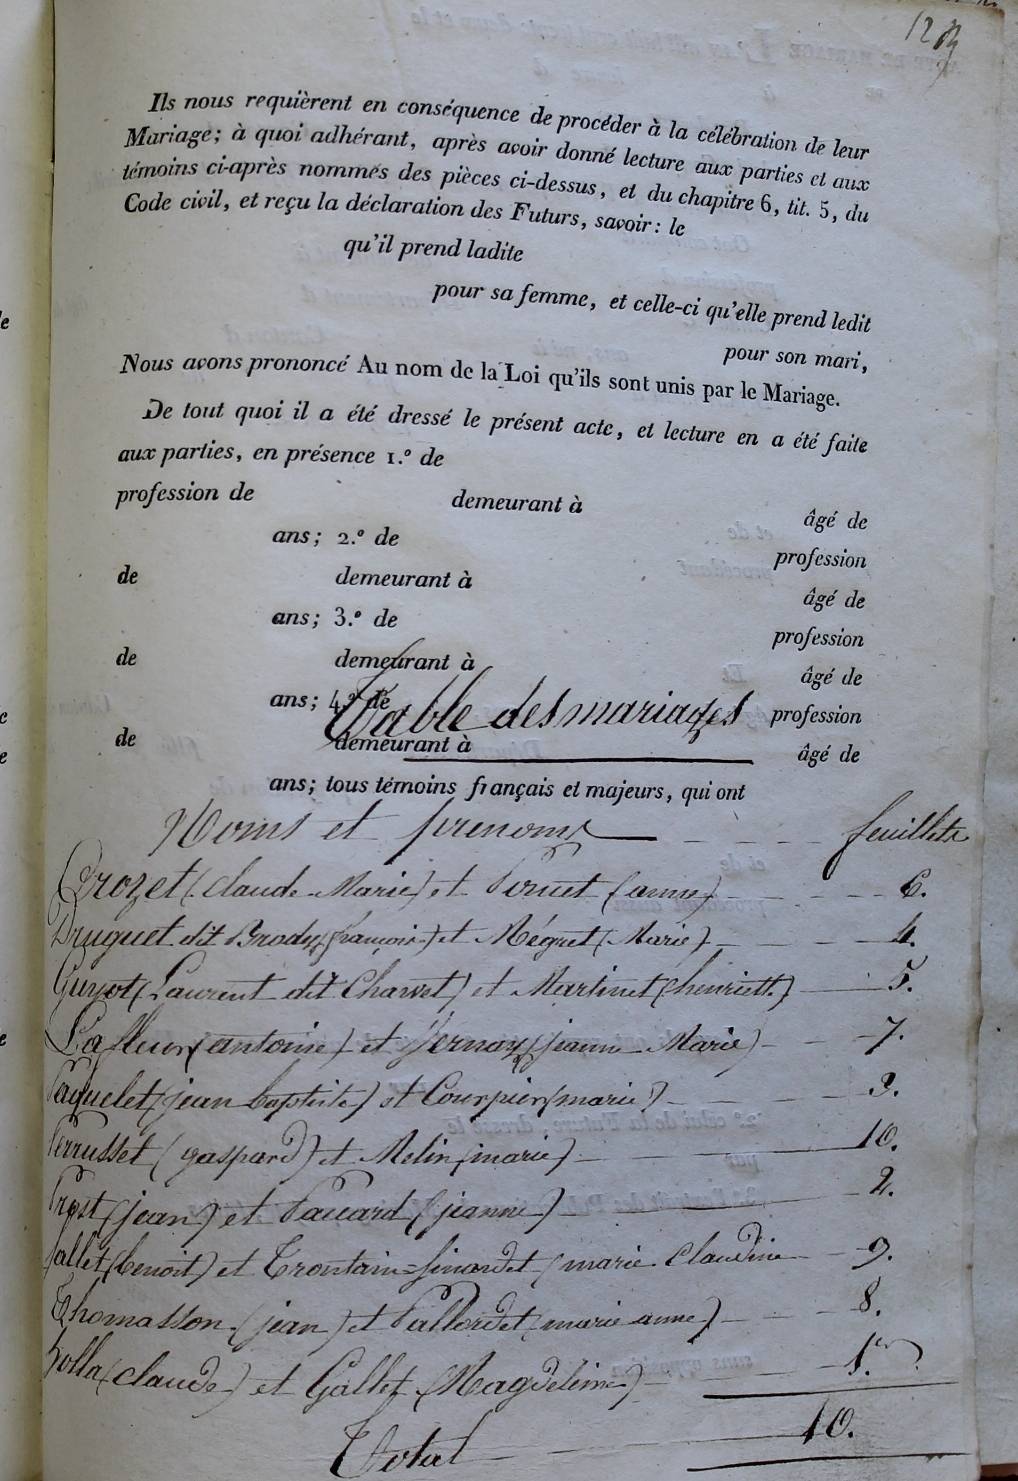 Ils nous requièrent en conséquence de procéder à la célébration de leur
Mariage; à quoi adhérant, après avoir donné lecture aux parties et aux
témoins ci-après nommés des pièces ci-dessus, et du chapitre 6, tit. 5, du
Code civil, et reçu la déclaration des Futurs, savoir: le
qu'il prend ladite
pour sa femme, et celle-ci qu'elle prend ledit
pour son mari,
Nous avons prononcé Au nom de la Loi qu'ils sont unis par le Mariage.
De tout quoi il a été dressé le présent acte, et lecture en a été faite
aux parties, en présence 1.º de
profession de demeurant à âgé de
ans; 2.º de profession
de demeurant à âgé de
ans; 3.º de profession
de demeurant à âgé de
ans; 4.º de profession
Table des mariages
de demeurant à âgé de
ans; tous témoins français et majeurs, qui ont
Noms et prenoms feuillets
Crozet (Claude Marie) et (anne) 6.
Druguet dit Brody (françois) et Méguet (Marie) 4.
Guyot (Laurent dit Charvet) et Martinet (henriette) 5.
Lafleur (antoine) et Vernay (jeanne Marie) 7.
Paquelet (jean baptiste) et Courpier (marie) 3.
Perrusset (gaspard) et Melin (marie) 10.
Prost (jean) et Pauard (jeanne) 2.
Sallet (benoit) et Trontain=Sinardet (marie Claudine 9.
Thomasson (jean) et Pallordet (marie anne) 8.
(claude) et Gallet (Magdeleine) 1.er
Total 10.